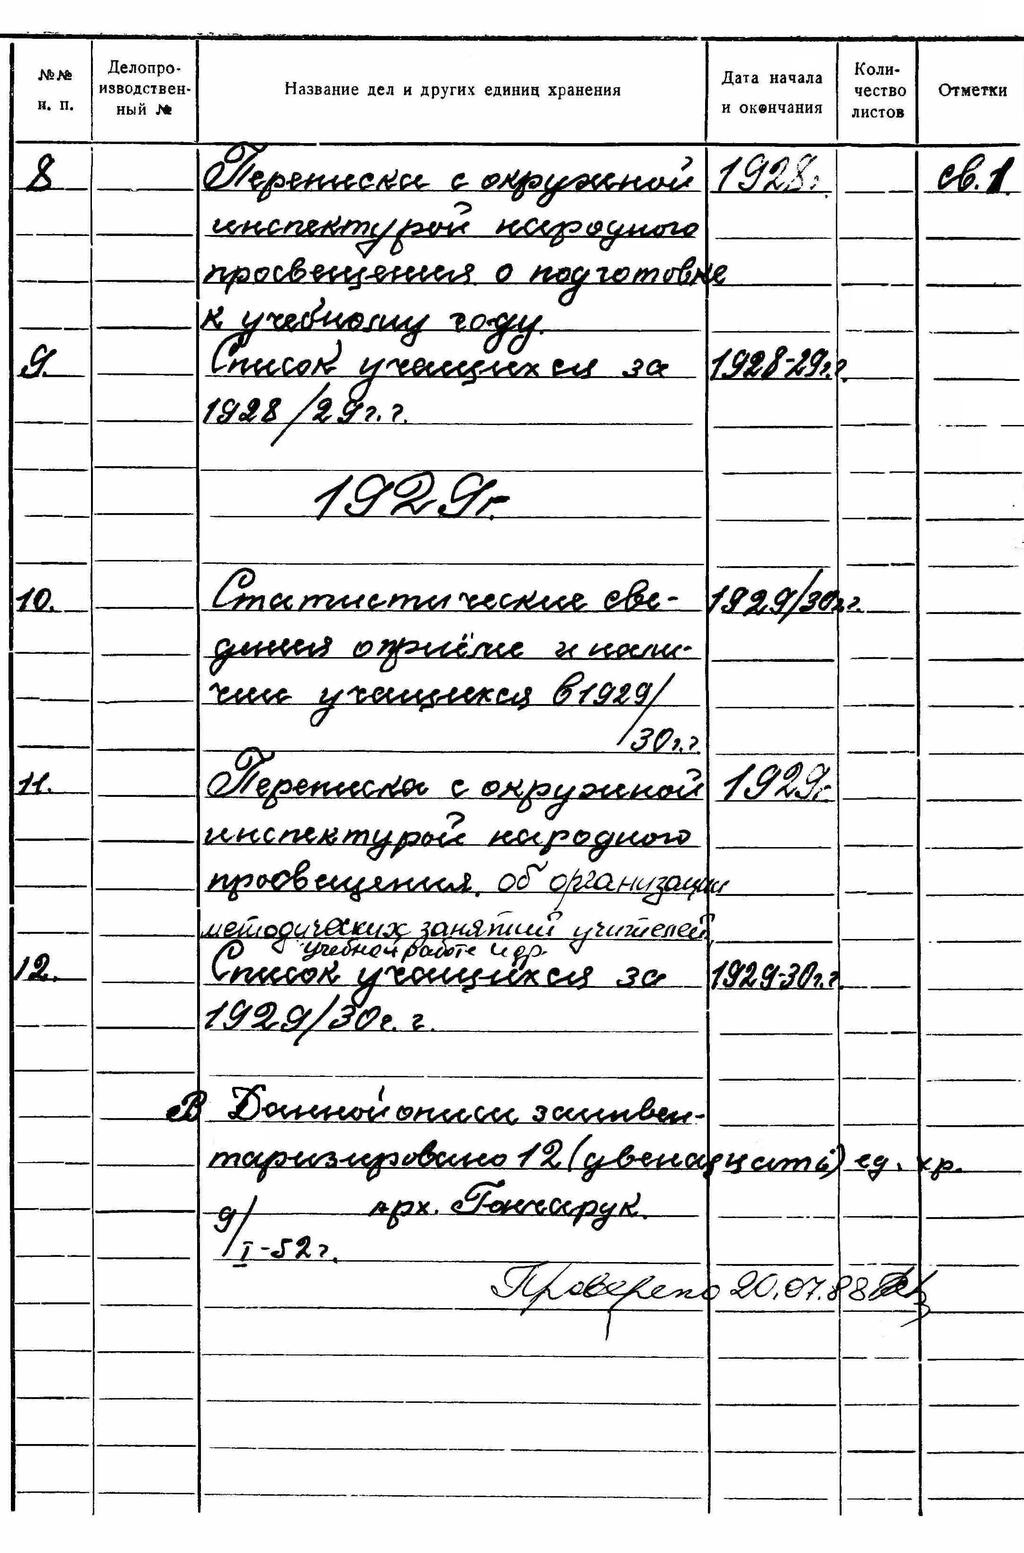 №№ н. п. | Делопро-изводствен-ный № | Название дел и других единиц хранения | Дата начала и окончания | Коли-чество листов | Отметки
8 Переписка с окружной 1928г. св. 1
инспектурой народного
просвещения о подготовке
к учебному году.
9. Список учащихся за 1928-29г.г.
1928/29г.г.
1929г.
10. Статистические све- 1929/30г.г.
дения о приёме и нали-
чии учащихся в 1929/
30г.г.
11. Переписка с окружной 1929г.
инспектурой народного
просвещения. об организации
методических занятий учителей,
учебной работе и др.
12. Список учащихся за 1929-30г.г.
1929/30г. г.
В Данной описи заинвен-
таризировано 12 (двенадцать) ед. хр.
9/ арх. Гончарук.
I-52г.
Проверено 20.07.88